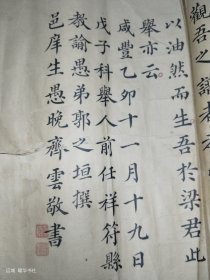 觀吾之譜者
以油然而生吾於梁君此
舉亦云
咸豐乙卯十一月十九日
戊子科舉人前任祥符縣
教諭愚弟郭之垣撰
邑庠生愚晚齊雲敬書